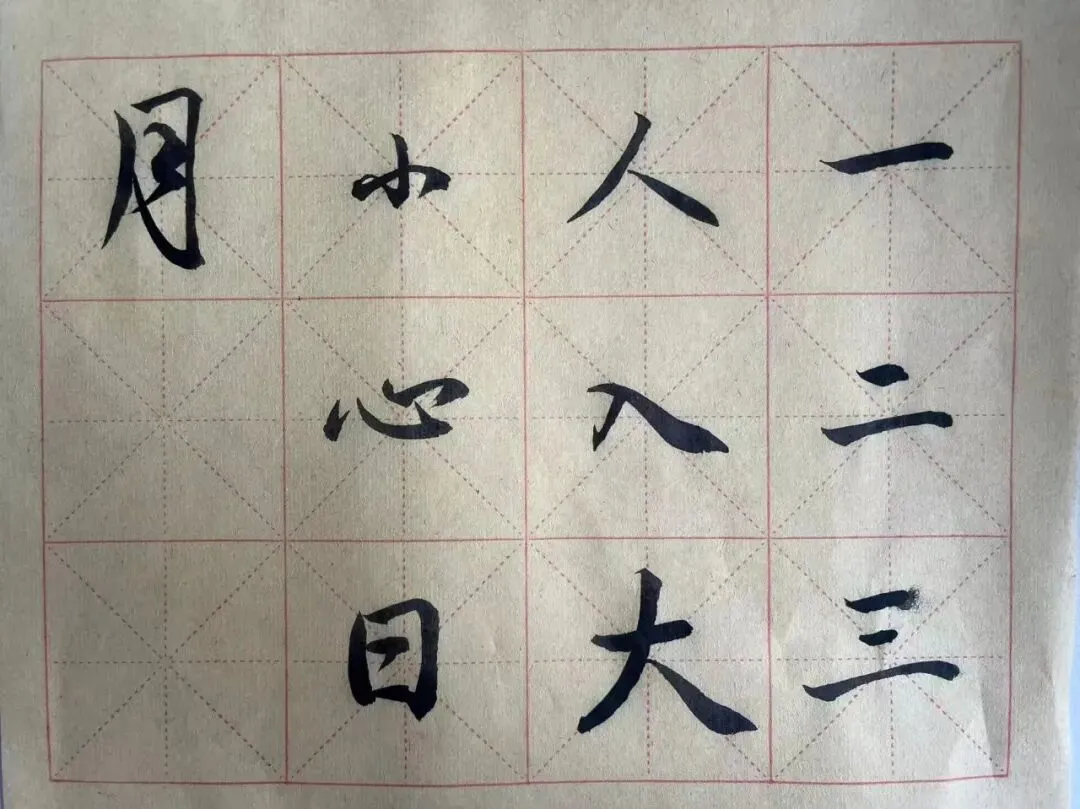 一二三
人入大
小心日
月